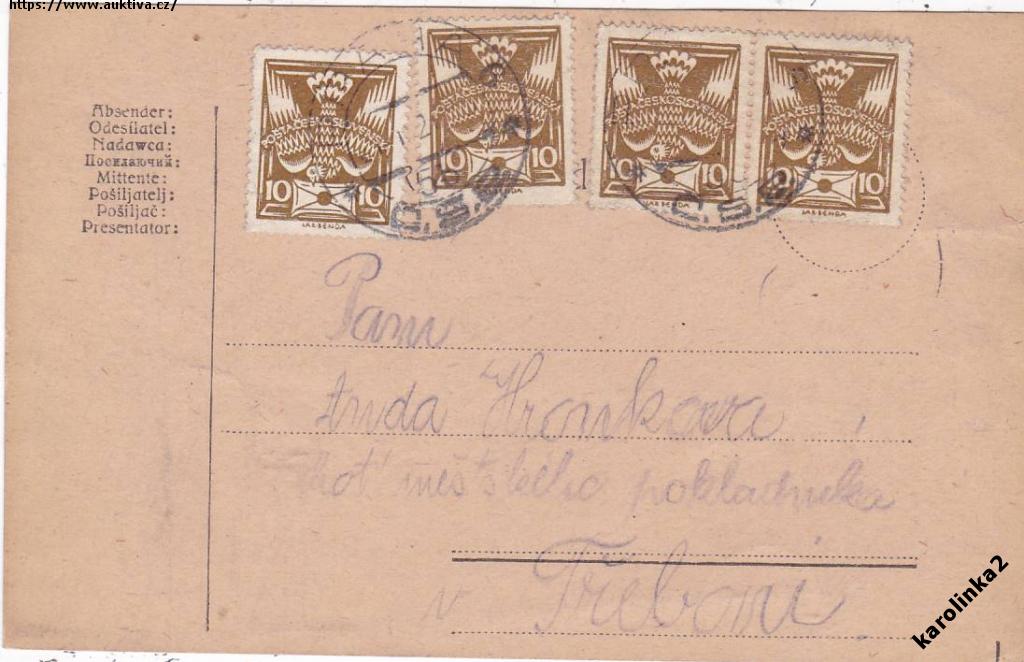 https://www.auktiva.cz/
Absender:
Odesílatel:
Nadawca:
Посилаючий:
Mittente:
Pošiljatelj:
Pošiljač:
Presentator:
POŠTA ČESKOSLOVENSKÁ
10 10
JAR. BENDA
POŠTA ČESKOSLOVENSKÁ
10 10
JAR. BENDA
POŠTA ČESKOSLOVENSKÁ
10 10
JAR. BENDA
POŠTA ČESKOSLOVENSKÁ
10 10
JAR. BENDA
Paní
Hronkova
choť městského pokladníka
v Třeboni
karolinka2